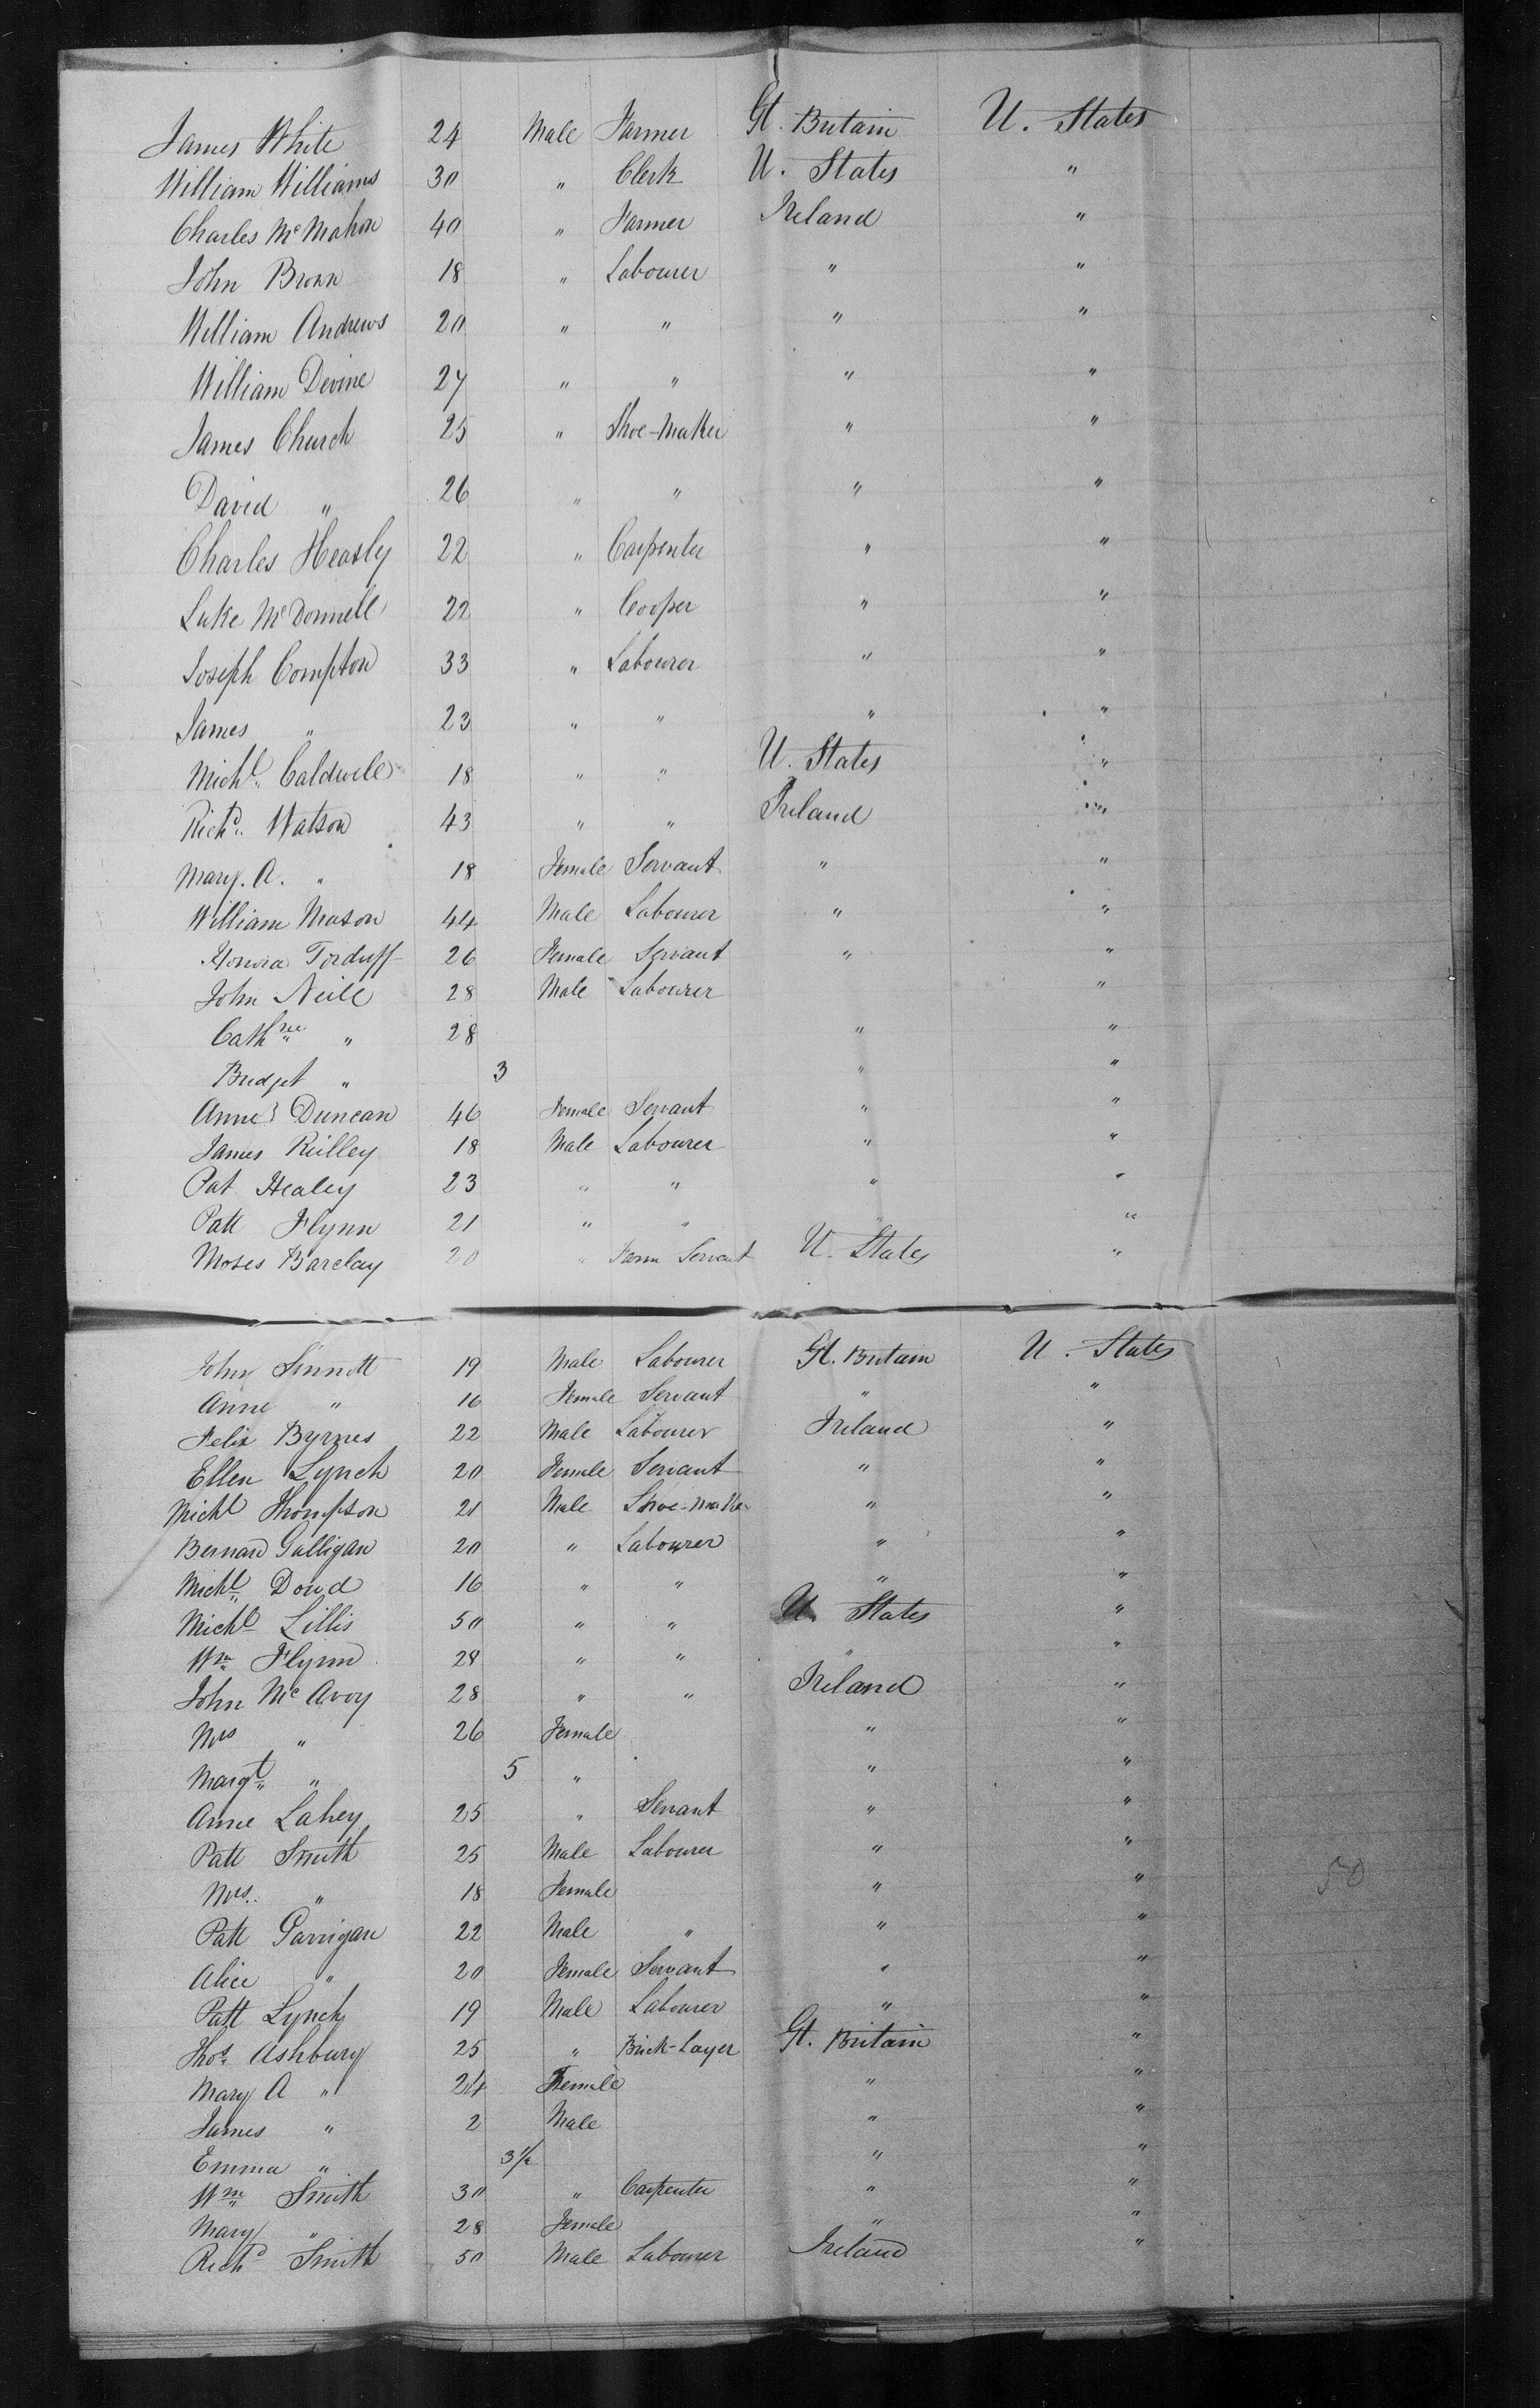 James White 24 Male Farmer Gt. Britain U. States
William Williams 30 " Clerk U. States "
Charles McMahon 40 " Farmer Ireland "
John Brown 18 " Labourer " "
William Andrews 20 " " " "
William Devine 27 " " " "
James Church 25 " Shoe-Maker " "
David " 26 " " " "
Charles Heasly 22 " Carpenter " "
Luke McDonnell 22 " Cooper " "
Joseph Compton 33 " Labourer " "
James " 23 " " " "
Michl. Caldwell 18 " " U. States "
Richd. Watson 43 " " Ireland "
Mary. A. " 18 Female Servant " "
William Mason 44 Male Labourer " "
Honora Torduff 26 Female Servant " "
John Neill 28 Male Labourer "
Cathne " 28 " "
Bridget " 3 " "
Anne Duncan 46 Female Servant " "
James Reilley 18 Male Labourer " "
Pat Healey 23 " " " "
Patt Flynn 21 " " " "
Moses Barclay 20 " Farm Servant U. States "
John Sinnott 19 Male Labourer Gt. Britain U. States
Anne " 16 Female Servant " "
Felix Byrnes 22 Male Labourer Ireland "
Ellen Lynch 20 Female Servant " "
Michl Thompson 21 Male Shoe-maker " "
Bernard Galligan 20 " Labourer " "
Michl Doud 16 " " " "
Michl Lillis 50 " " U. States "
Wm Flynn 28 " " " "
John McAvoy 28 " " Ireland "
Mrs " 26 Female " "
Margt " 5 " " "
Anne Lahey 25 " Servant " "
Patt Smith 25 Male Labourer " "
Mrs. " 18 Female " "
Patt Garrigan 22 Male " " "
Alice " 20 Female Servant " "
Patt Lynch 19 Male Labourer " "
Thos Ashbury 25 " Brick-Layer Gt. Britain "
Mary A " 24 Female " "
James " 2 Male " "
Emma " 3½ " "
Wm Smith 30 " Carpenter " "
Mary " 28 Female " "
Richd Smith 50 Male Labourer Ireland "
50